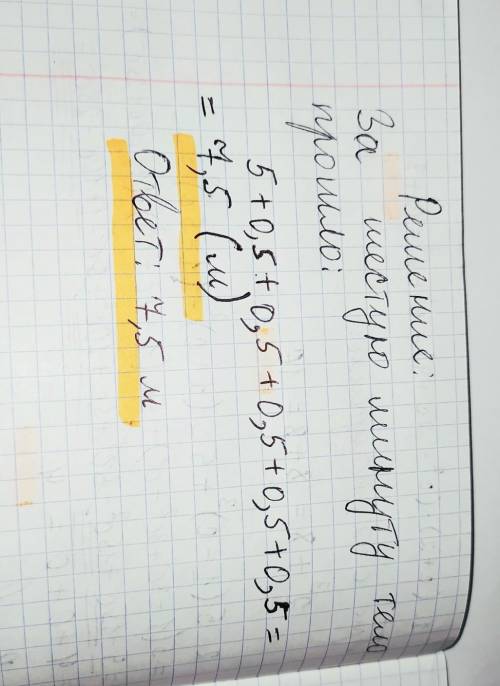 Решение:
За шестую минуту тело
прошло:
5+0,5+0,5+0,5+0,5+0,5=
= 7,5 (м)
Ответ: 7,5 м